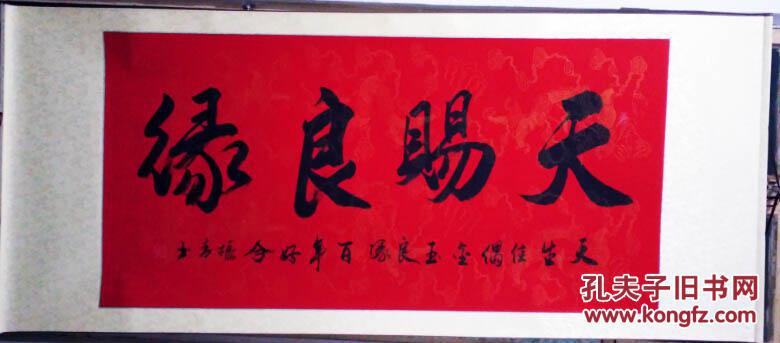 天賜良緣
天生佳偶金玉良缘百年好合
孔夫子旧书网
www.kongfz.com